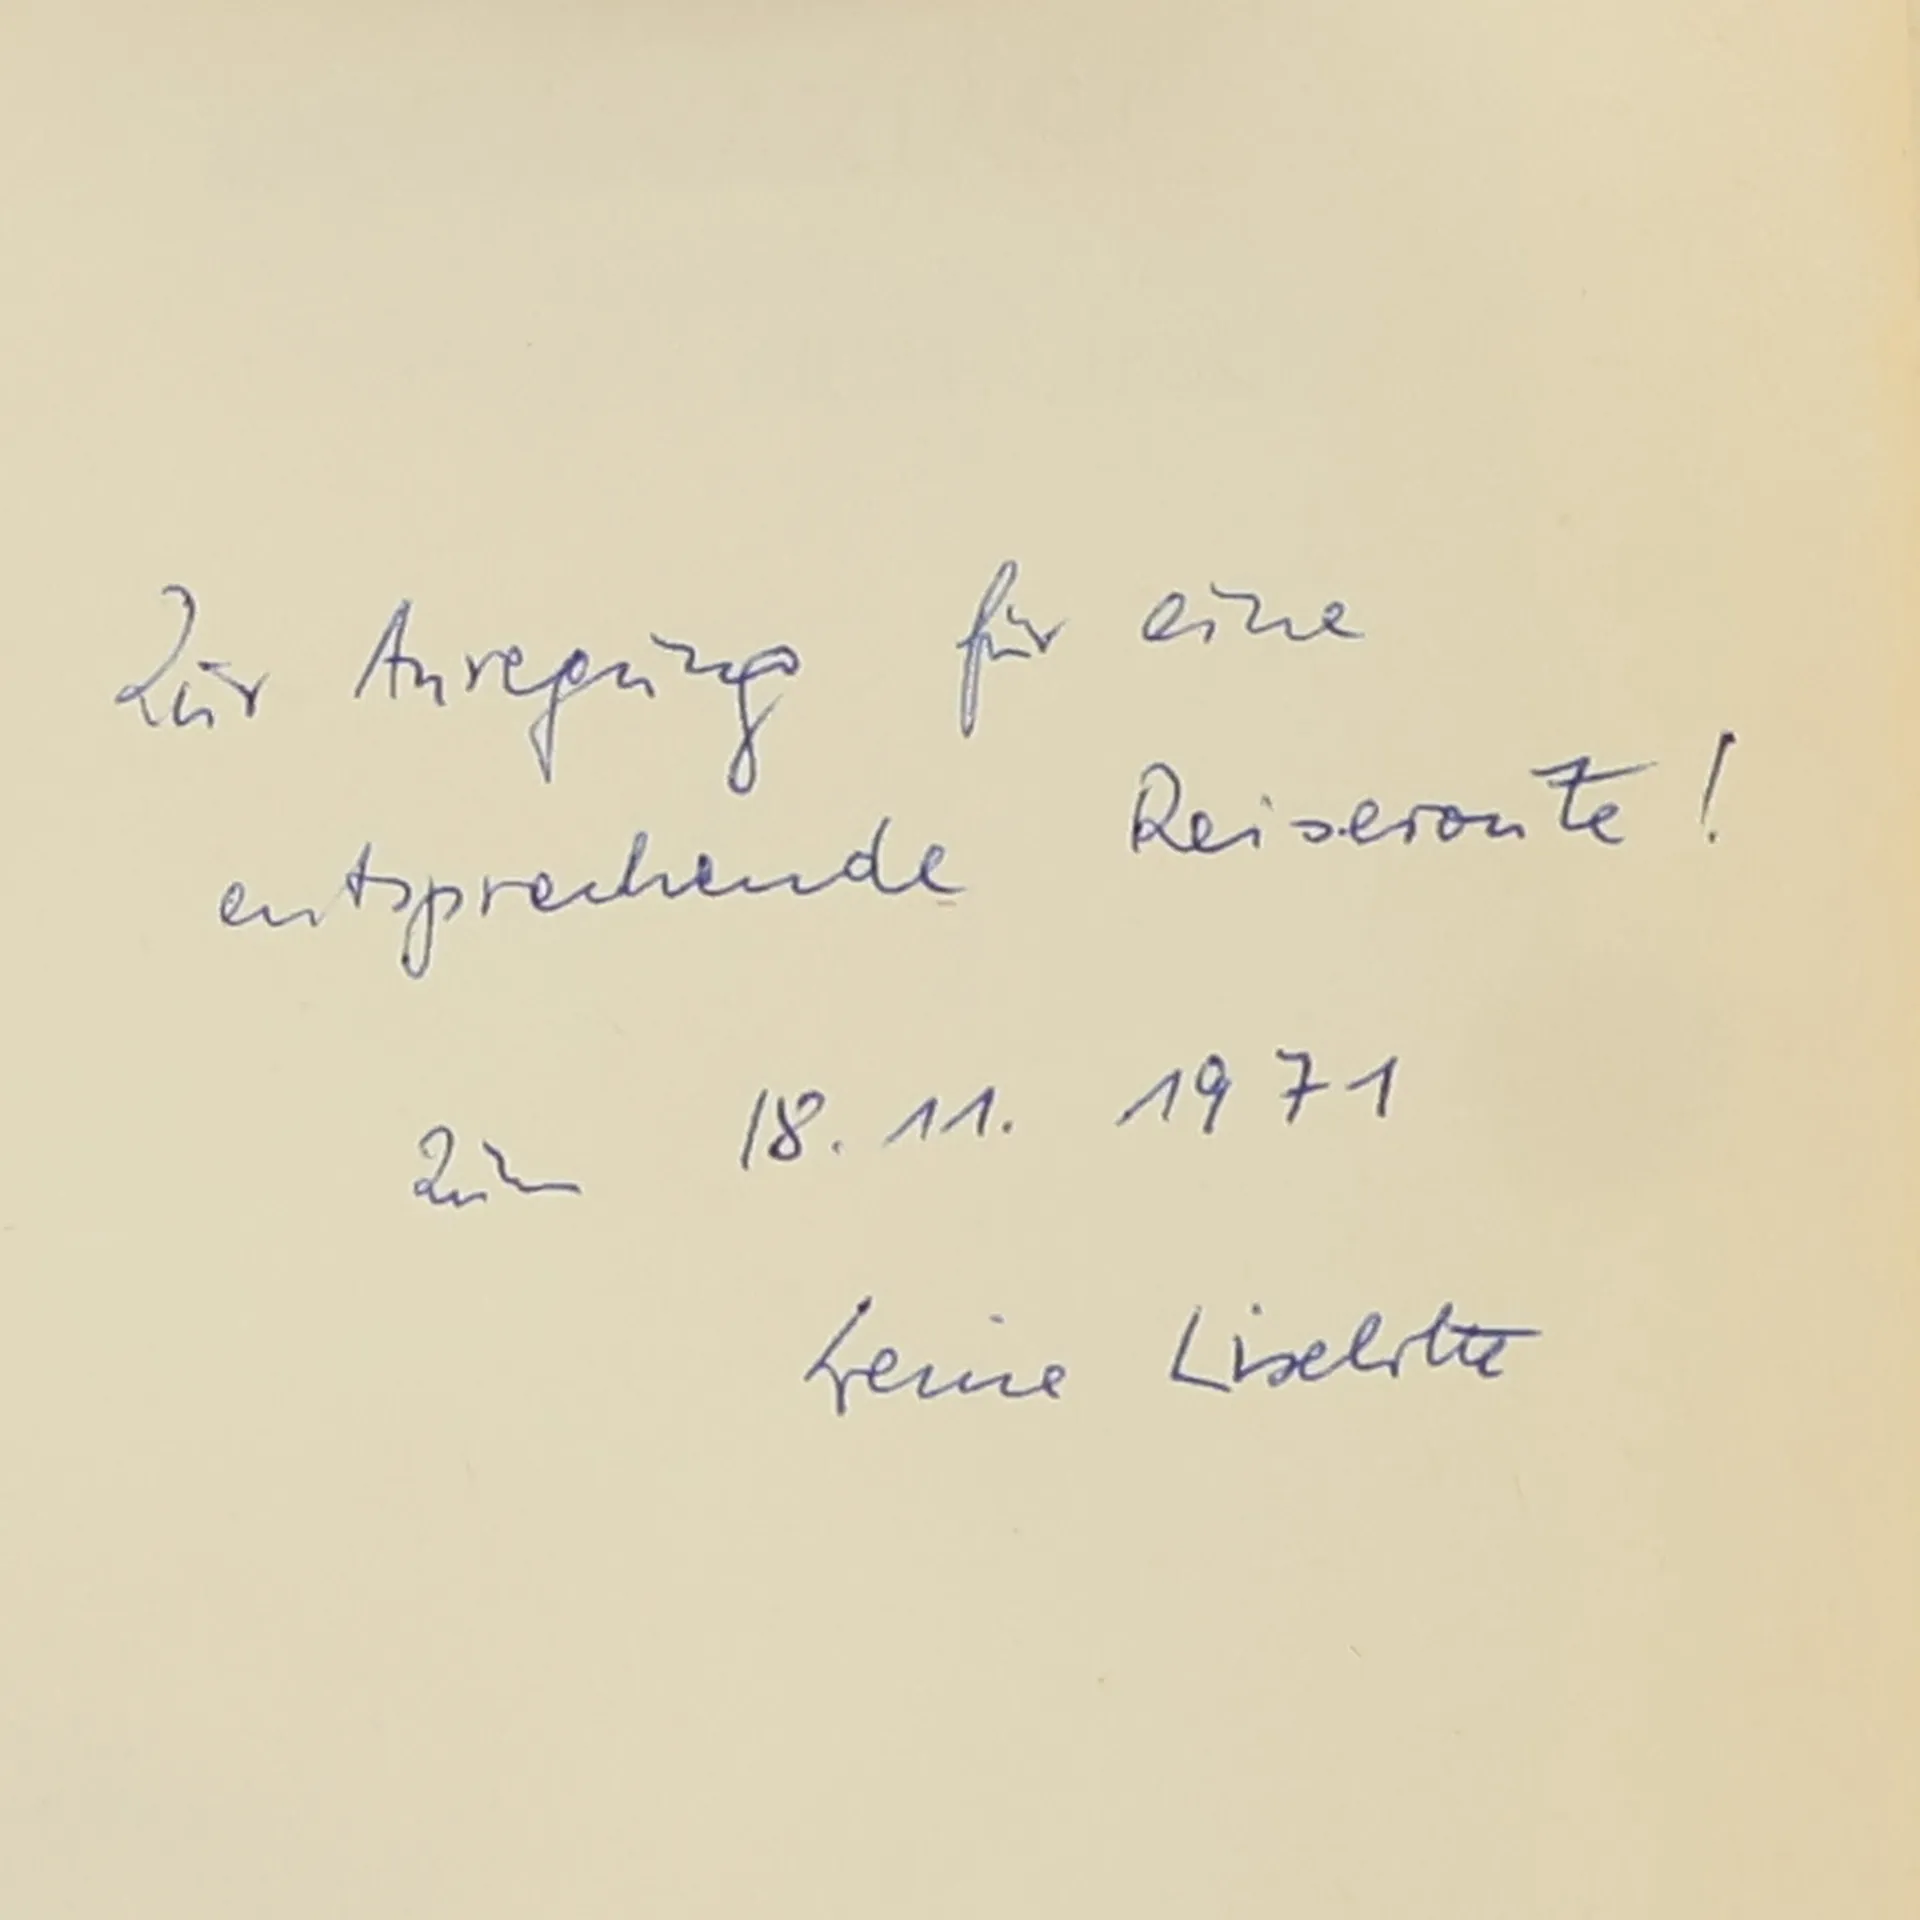 Zur Anregung für eine
entsprechende Reiseroute!
Zum 18. 11. 1971
Deine Liselotte